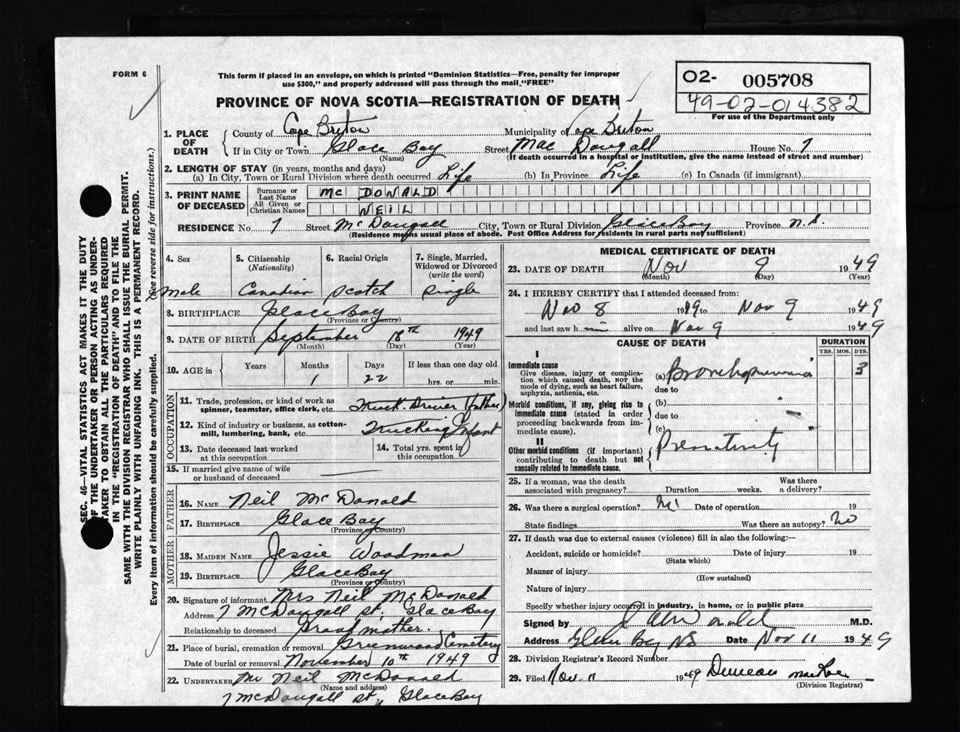 FORM 6
This form if placed in an envelope, on which is printed "Dominion Statistics—Free, penalty for improper
use $300," and properly addressed will pass through the mail "FREE"
PROVINCE OF NOVA SCOTIA—REGISTRATION OF DEATH
O2- 005708
49-02-014382
For use of the Department only
1. PLACE OF DEATH
County of Cape Breton Municipality of Cape Breton
If in City or Town Glace Bay Street Mac Dougall House No. 7
(Name) (If death occurred in a hospital or institution, give the name instead of street and number)
2. LENGTH OF STAY (in years, months and days)
(a) In City, Town or Rural Division where death occurred Life (b) In Province Life (c) In Canada (if immigrant)
3. PRINT NAME OF DECEASED
Surname or Last Name MC DONALD
All Given or Christian Names NEIL
RESIDENCE No. 7 Street McDougall City, Town or Rural Division Glace Bay Province N.S.
(Residence means usual place of abode. Post Office Address for residents in rural parts not sufficient)
4. Sex Male
5. Citizenship (Nationality) Canadian
6. Racial Origin Scotch
7. Single, Married, Widowed or Divorced (write the word) Single
8. BIRTHPLACE Glace Bay
(Province or Country)
9. DATE OF BIRTH September 18th 1949
(Month) (Day) (Year)
10. AGE in Years Months 1 Days 22 If less than one day old hrs. or min.
OCCUPATION
11. Trade, profession, or kind of work as spinner, teamster, office clerk, etc. Truck Driver (Father)
12. Kind of industry or business, as cotton-mill, lumbering, bank, etc. Trucking Infant
13. Date deceased last worked at this occupation
14. Total yrs. spent in this occupation
15. If married give name of wife or husband of deceased
FATHER
16. NAME Neil McDonald
17. BIRTHPLACE Glace Bay
(Province or Country)
MOTHER
18. MAIDEN NAME Jessie Woodman
19. BIRTHPLACE Glace Bay
(Province or Country)
20. Signature of informant Mrs Neil McDonald
Address 7 McDougall St. Glace Bay
Relationship to deceased Grandmother.
21. Place of burial, cremation or removal Greenwood Cemetery
Date of burial or removal November 10th 1949
22. UNDERTAKER Mr Neil McDonald
(Name and address)
7 McDougall St., Glace Bay
MEDICAL CERTIFICATE OF DEATH
23. DATE OF DEATH Nov 9 1949
(Month) (Day)
24. I HEREBY CERTIFY that I attended deceased from:
Nov 8 19 to Nov 9 1949
and last saw h im alive on Nov 9 1949
CAUSE OF DEATH DURATION
YRS. MOS. DYS.
I
Immediate cause
Give disease, injury or complication which caused death, not the mode of dying, such as heart failure, asphyxia, asthenia, etc.
(a) Bronchopneumonia 3
due to
Morbid conditions, if any, giving rise to immediate cause (stated in order proceeding backwards from immediate cause).
(b)
due to
(c)
II
Other morbid conditions (if important) contributing to death but not causally related to immediate cause.
Prematurity
25. If a woman, was the death associated with pregnancy? Duration weeks. Was there a delivery?
26. Was there a surgical operation? No Date of operation 19
State findings Was there an autopsy? No
27. If death was due to external causes (violence) fill in also the following:—
Accident, suicide or homicide? Date of injury 19
(State which)
Manner of injury
(How sustained)
Nature of injury
Specify whether injury occurred in industry, in home, or in public place
Signed by M.D.
Address Glace Bay NS Date Nov 11 1949
28. Division Registrar's Record Number
29. Filed Nov. 11 1949 Duncan
(Division Registrar)
SEC. 46—VITAL STATISTICS ACT MAKES IT THE DUTY
OF THE UNDERTAKER OR PERSON ACTING AS UNDER-
TAKER TO OBTAIN ALL THE PARTICULARS REQUIRED
IN THE "REGISTRATION OF DEATH" AND TO FILE THE
SAME WITH THE DIVISION REGISTRAR WHO SHALL ISSUE THE BURIAL PERMIT.
WRITE PLAINLY WITH UNFADING INK. THIS IS A PERMANENT RECORD.
Every item of information should be carefully supplied. (See reverse side for instructions.)